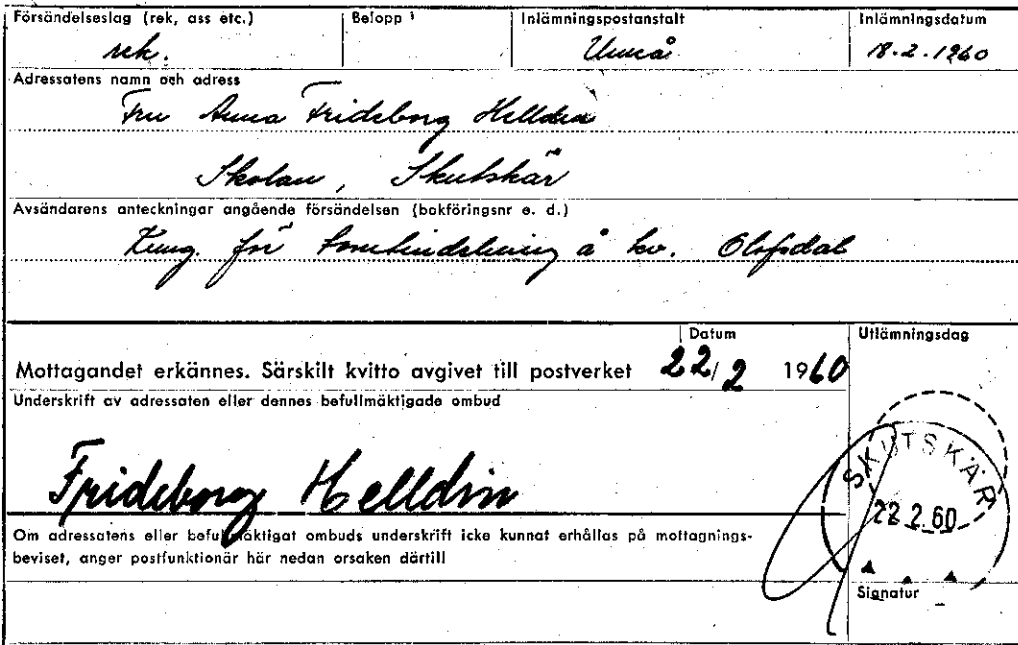 Försändelseslag (rek, ass etc.) Belopp ¹ Inlämningspostanstalt Inlämningsdatum
rek. Umeå 18.2.1960
Adressatens namn och adress
Fru Anna Frideborg Helldin
Skolan, Skutskär
Avsändarens anteckningar angående försändelsen (bokföringsnr e. d.)
Kung. för tomtindelning å kv. Olofsdal
Datum Utlämningsdag
Mottagandet erkännes. Särskilt kvitto avgivet till postverket 22/2 1960
Underskrift av adressaten eller dennes befullmäktigade ombud
SKUTSKÄR
Frideborg Helldin
22.2.60
Om adressatens eller befullmäktigat ombuds underskrift icke kunnat erhållas på mottagnings-
beviset, anger postfunktionär här nedan orsaken därtill
Signatur